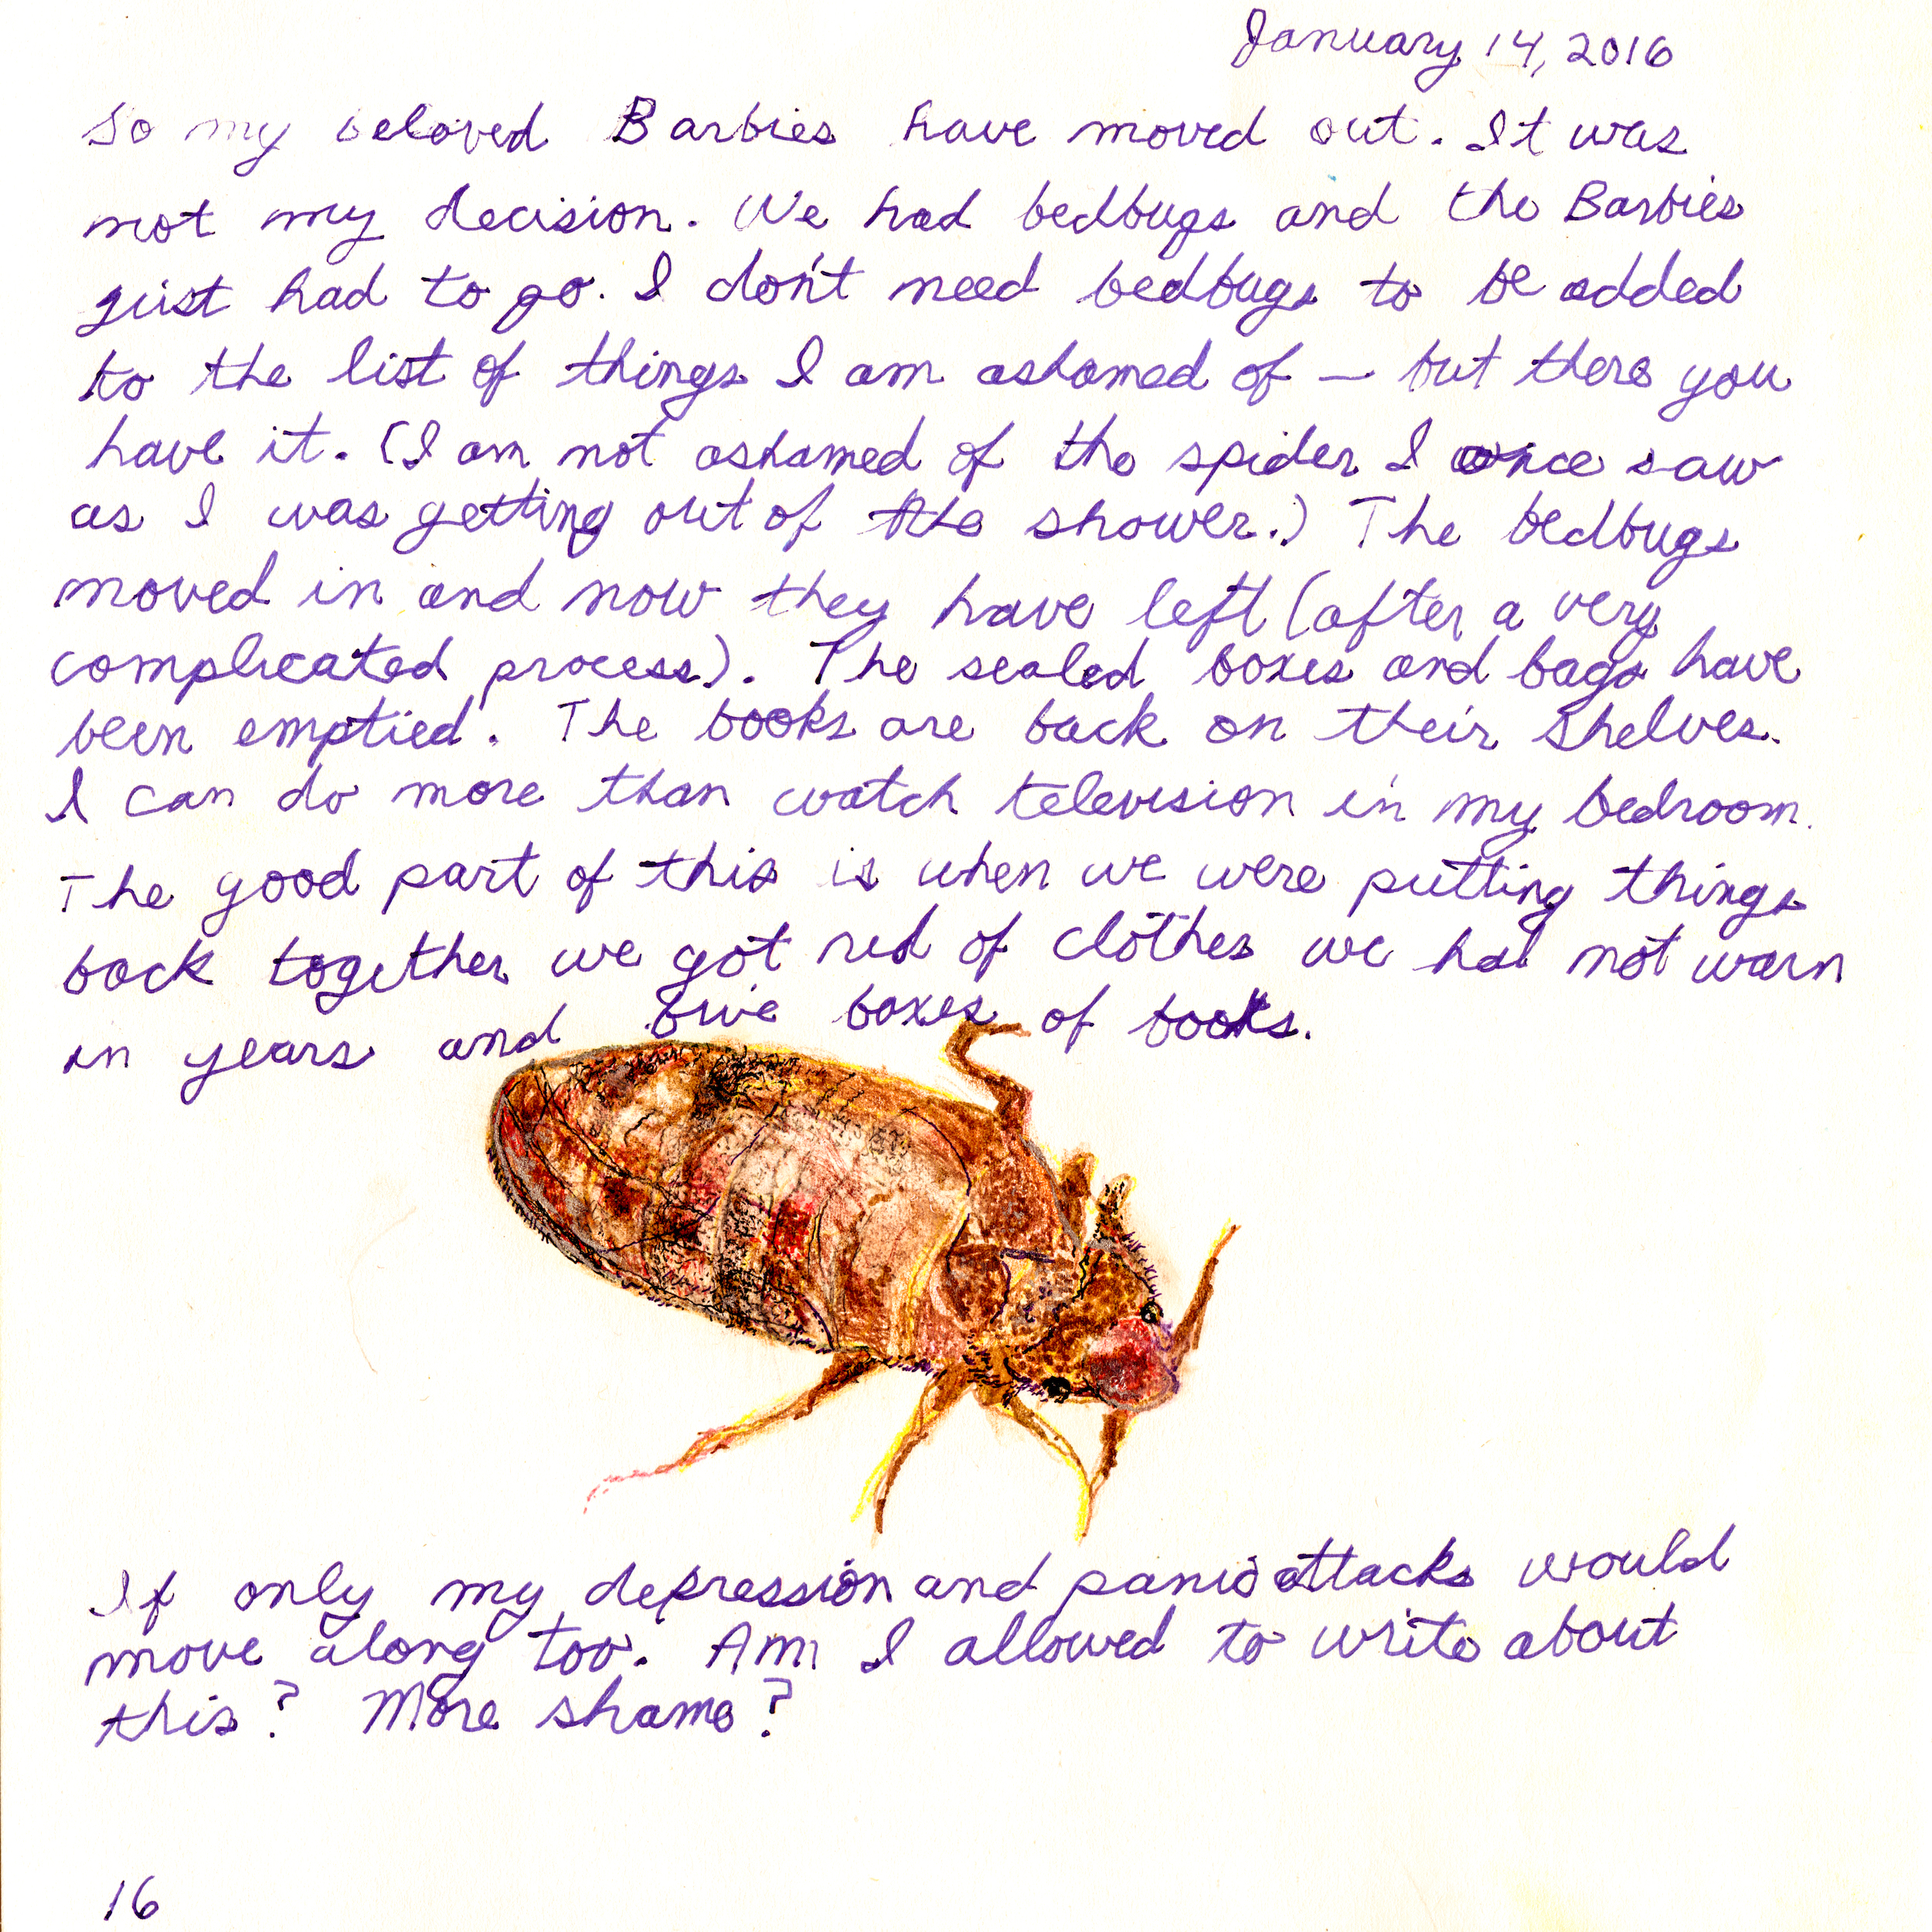 January 14, 2016
So my beloved Barbies have moved out. It was
not my decision. We had bedbugs and the Barbies
just had to go. I don't need bedbugs to be added
to the list of things I am ashamed of — but there you
have it. (I am not ashamed of the spider I once saw
as I was getting out of the shower.) The bedbugs
moved in and now they have left (after a very
complicated process). The sealed boxes and bags have
been emptied. The books are back on their shelves.
I can do more than watch television in my bedroom.
The good part of this is when we were putting things
back together we got rid of clothes we had not warn
in years and boxes of books.
If only my depression and panic attacks would
move along too. Am I allowed to write about
this? More shame?
16